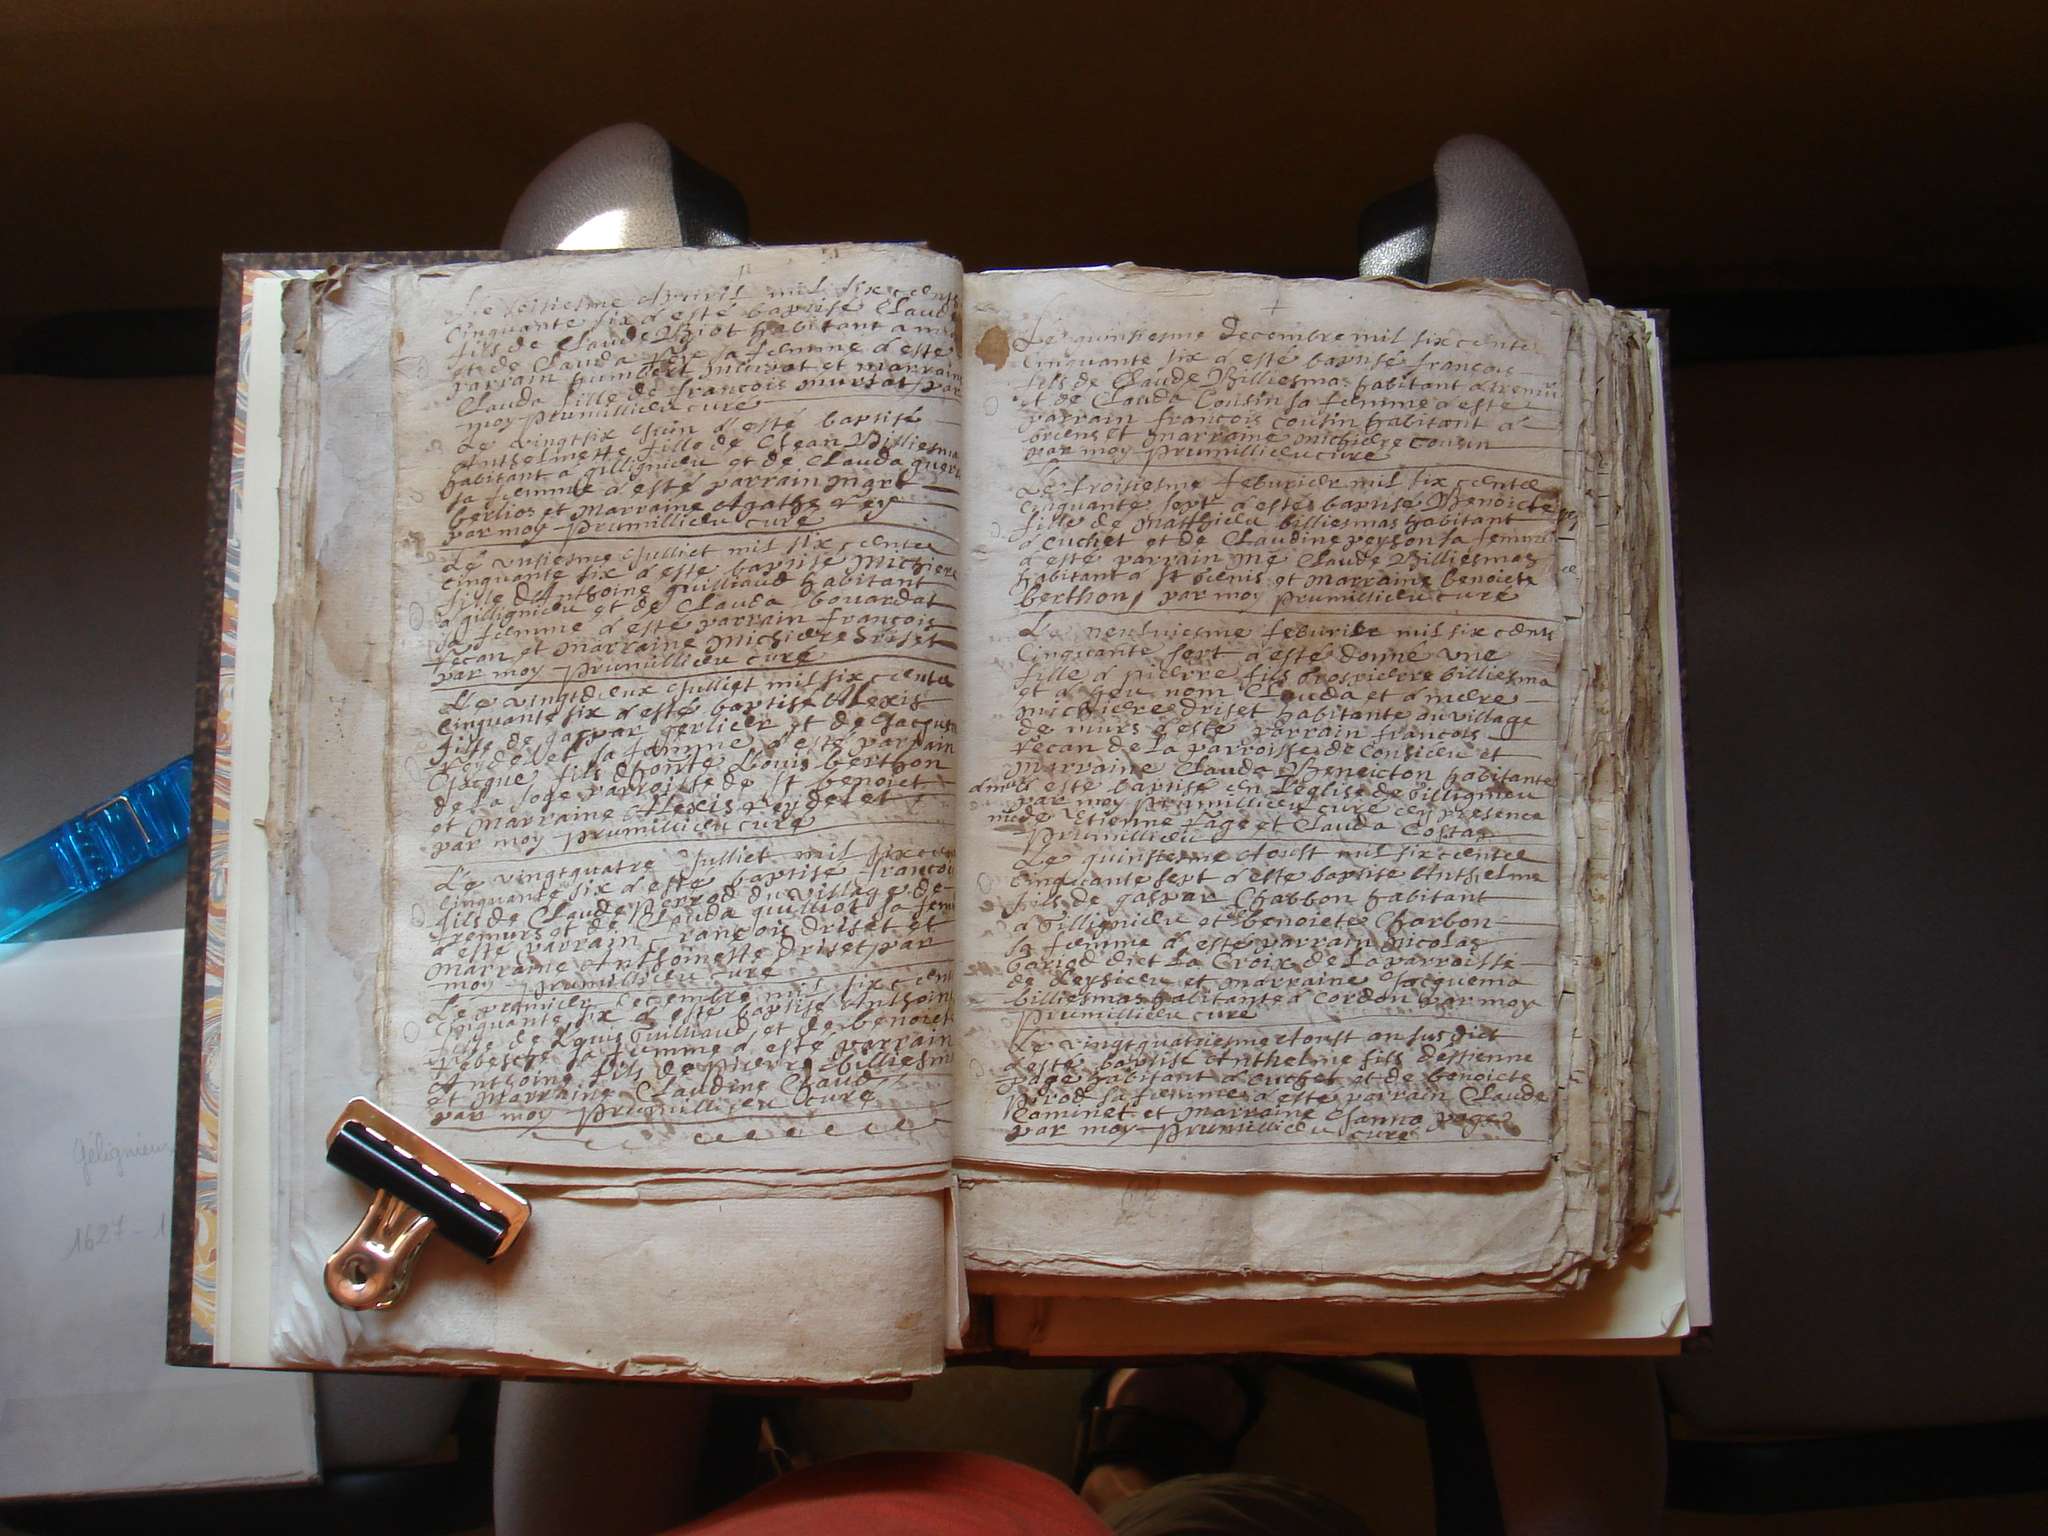 Le sesiesme Apvril mil six centz
Cinquante six a esté baptisé Claude
fils de Claude Biot habitant a
et de Clauda sa femme a esté
parrain humbert et marraine
Clauda fille de françois par
moy Prumillieu curé
Le vingtsix Juin a esté baptisé
Anthelmette fille de Jean Billiesma
habitant a gillignieu et de Clauda
sa femme a esté parrain
berlioz et Marraine Agathe Rey
par moy Prumillieu curé
Le unsiesme Julliet mil six centz
cinquante six a esté baptisé Michiere
fille d'Anthoine guilliaud habitant
a gillignieu et de Clauda bouardat
sa femme a esté parrain françois
recan et marraine Michiere Driset
par moy Prumillieu curé
Le vingtdeux Julliet mil six centz
Cinquante six a esté baptisé Alexis
fils de gaspar gerlier et de Jacquem
Reydelet sa femme a esté parrain
Jacque fils d'honte Louis berthon
de la parroisse de St benoict
et Marraine Alexis Reydelet
par moy Prumillieu curé
Le vingtquatre Julliet mil six cent
cinquante six a esté baptisé françois
fils de Claude perrod du village de
fremurs et de Clauda guilliot sa fem
a esté parrain François Driset et
Marraine Anthoinette Driset par
moy Prumillieu curé
Le premier Decembre mil six cent
Cinquante six a esté baptisé Anthoin
de Louis Guilliaud et de benoicte
sa femme a esté parrain
Anthoine fils de Pierre billiesma
et Marraine Claudine Claud
par moy Prumillieu curé
Le quinsiesme Decembre mil six cente
Cinquante six a esté baptisé françois
fils de Claude Billiesmas habitant a fremur
et de Clauda Cousin sa femme a esté
parrain françois cousin habitant a
briens et marraine Michiere cousin
par moy Prumillieu curé
Le troisiesme feburier mil six cente
cinquante sept a esté baptisé Benoicte
fille de Matthieu billiesmas habitant
a cuchet et de Claudine peyson sa femme
a esté parrain me Claude Billiesmas
habitant a St Denis et Marraine benoicte
berthon, par moy Prumillieu curé
Le neufuiesme feburier mil six cents
Cinquante sept a esté donné une
fille a pierre fils d'hospierre billiesma
et a heu nom Clauda et a mere
Michiere Driset habitante au village
de murs a esté parrain françois
recan de la parroisse de Consieu et
Marraine Clauda Beneicton habitante
esté baptisé en l'eglise de Gillignieu
par moy Prumillieu curé en presence
de Etienne page et Clauda Costaz
Prumillieu
Le quinsiesme Aoust mil six cente
cinquante sept a esté baptisé Anthelme
fils de gaspar Charbon habitant
a Gillignieu et benoiete Charbon
sa femme a esté parrain Nicolas
bariod dict La Croix de la parroisse
de Leysieu et marraine Jacquema
billiesmas habitante a Cordon par moy
Prumillieu curé
Le vingtquatriesme Aoust an susdict
a esté baptisé Anthelme fils d'estienne
page habitant a cuchet et de benoicte
prod sa femme a esté parrain Claude
Caminet et Marraine Janna page
par moy Prumillieu
curé
Gélignieux
1627 - 1